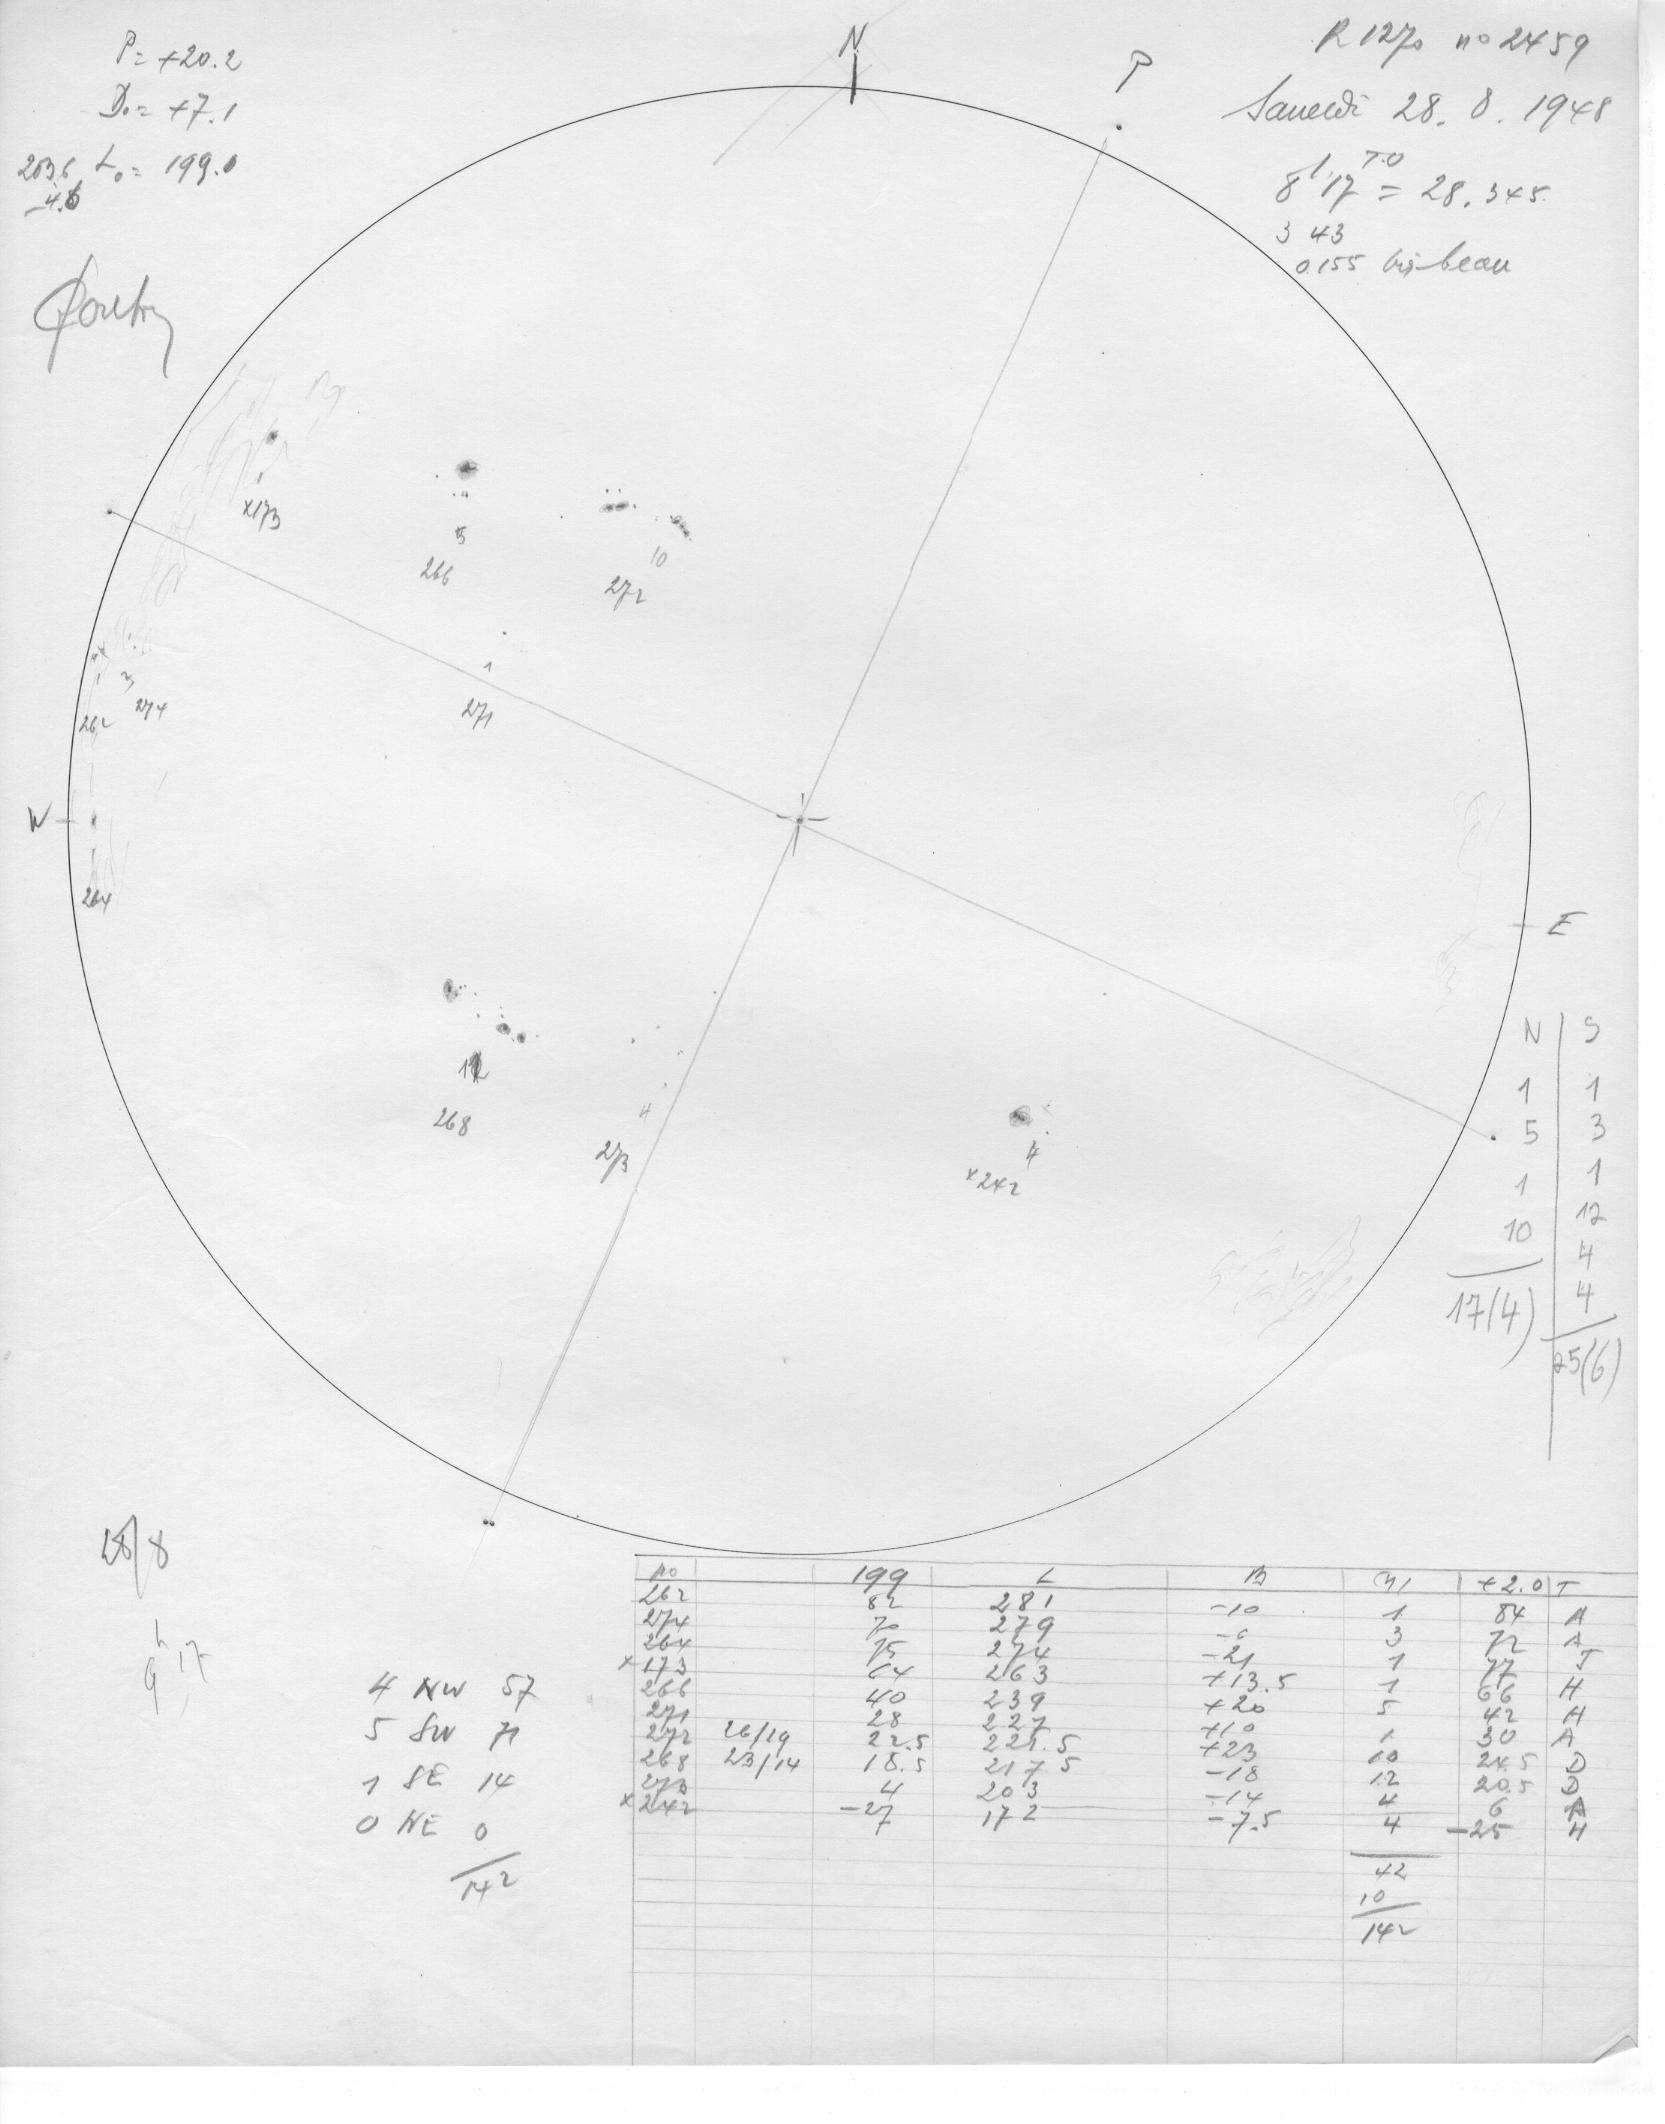 P = +20.2
D₀ = +7.1
203.6 L₀ = 199.0
-4.6
N
P
R 127₀ nº 2459
Samedi 28. 8. 1948
8h17 T.O = 28.345
3 43
0.155 très beau
x173
5
266
10
272
1
271
1
262
3
274
W
264
E
12
268
4
273
4
x242
N | S
1 | 1
5 | 3
1 | 1
10 | 12
4
4
17(4)
25(6)
28/8
9h 17
4 NW 57
5 SW 71
1 SE 14
0 NE 0
142
no 199 L B +2.0 T
262 82 281 -10 1 84 A
274 70 279 -6 3 72 A
264 75 274 -21 1 77 J
x173 64 263 +13.5 1 66 H
266 40 239 +20 5 42 H
271 28 227 +10 1 30 A
272 26/19 22.5 221.5 +23 10 24.5 D
268 23/14 18.5 217.5 -18 12 20.5 D
273 4 203 -14 4 6 A
x242 -27 172 -7.5 4 -25 H
42
10
142